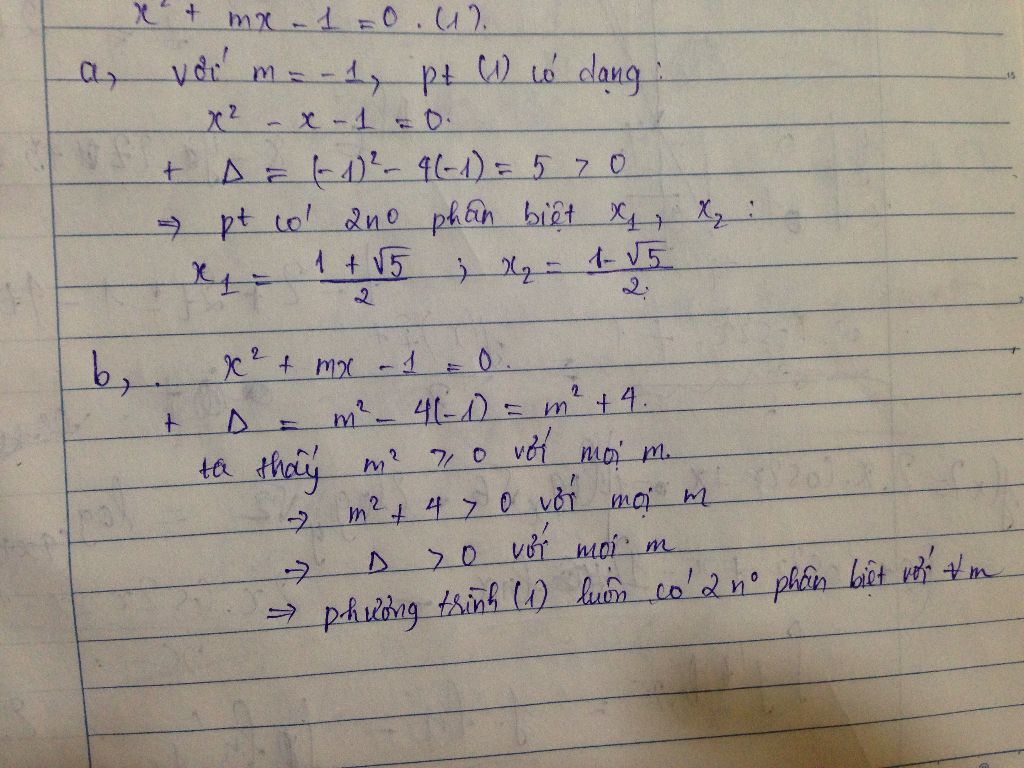 x² + mx - 1 = 0. (1).
a, với m = -1, pt (1) có dạng:
x² - x - 1 = 0.
+ Δ = (-1)² - 4(-1) = 5 > 0
⇒ pt có 2nº phân biệt x₁, x₂ :
x₁ = (1 + √5)/2 ; x₂ = (1 - √5)/2.
b, . x² + mx - 1 = 0.
+ Δ = m² - 4(-1) = m² + 4.
ta thấy m² ⩾ 0 với mọi m.
→ m² + 4 > 0 với mọi m
→ Δ > 0 với mọi m
⇒ phương trình (1) luôn có 2 nº phân biệt với ∀m